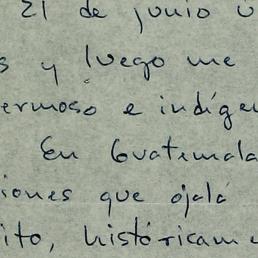 21 de junio u
s y luego me
ermoso e indíge
En Guatemala
iones que ojalá
ito, históricame